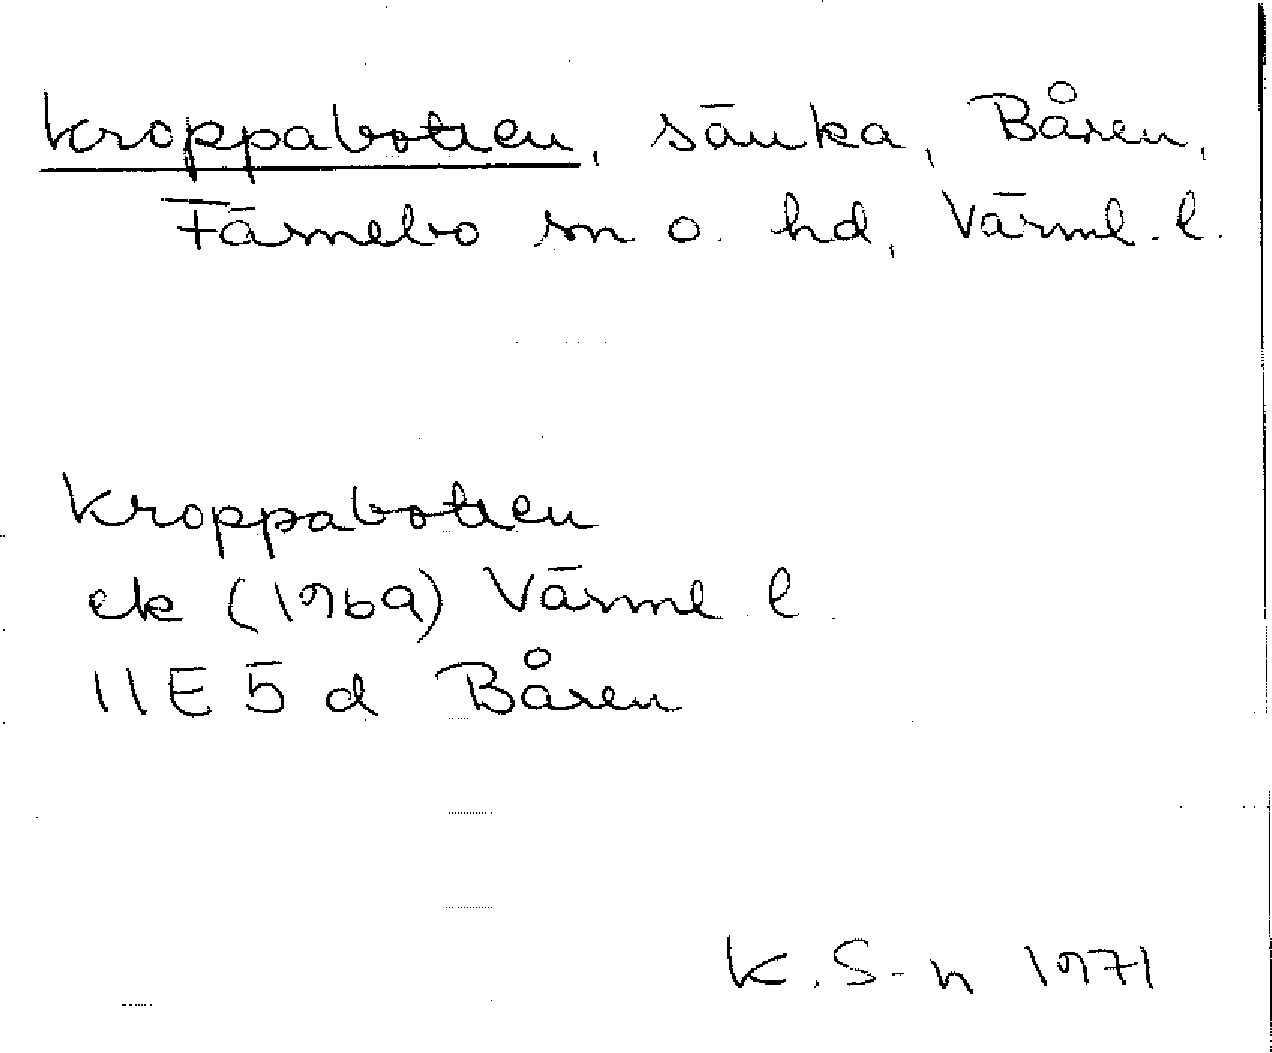 Kroppabotten, sänka, Båren,
Färnebo sn o. hd, Värml. l.
Kroppabotten
ek (1969) Värml l
11E 5 d Båren
K. S-n 1971